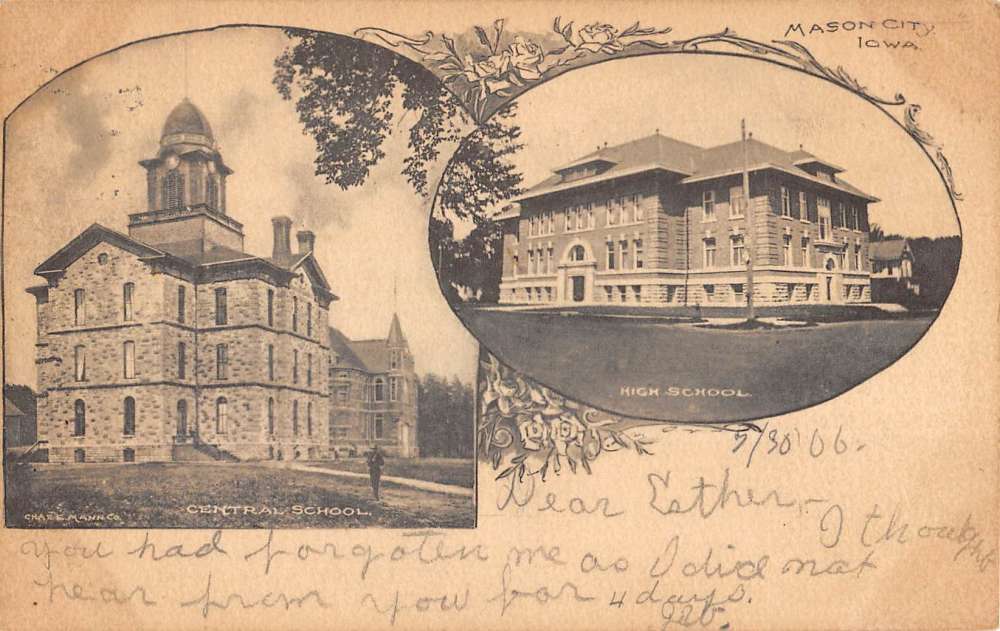 MASON CITY,
IOWA.
HIGH SCHOOL.
CENTRAL SCHOOL.
CHAS. E. MANN CO.
9/30 06.
Dear Esther,-
I thought
you had forgoten me as I did not
hear from you for 4 days.